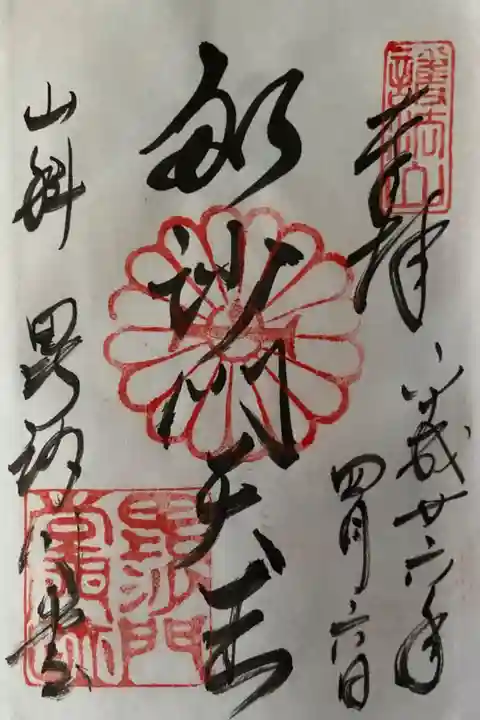 護法山
奉拝
平成廿六年
四月六日
毘沙門天王
山科 毘沙門堂
毘沙門
堂印